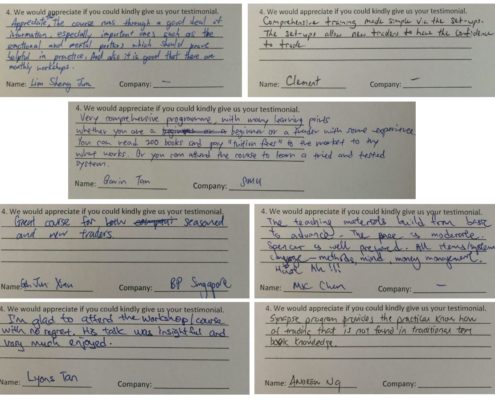 4. We would appreciate if you could kindly give us your testimonial.
Appreciate. The course runs through a good deal of
information, especially important ones such as the
emotional and mental portions which should prove
helpful in practice. And also it is good that there are
monthly workshops.
Name: Lim Sheng Jun Company: –
4. We would appreciate if you could kindly give us your testimonial.
Comprehensive training made simple via the set-ups.
The set-ups allow new traders to have the confidence
to trade.
Name: Clement Company: –
4. We would appreciate if you could kindly give us your testimonial.
Very comprehensive programme, with many learning points
whether you are a beginner or a trader with some experience
You can read 200 books and pay "tuition fees" to the market to try
what works. Or you can attend the course to learn a tried and tested
system.
Name: Gavin Tan Company: SMU
4. We would appreciate if you could kindly give us your testimonial.
Great course for both seasoned
and new traders
Name: Jun Company: BP Singapore
4. We would appreciate if you could kindly give us your testimonial.
The teaching materials build from basic
to advance. The pace is moderate.
Spencer is well prepared. All items/system
methods, mind, money management.
Name: MK Chen Company: –
I'm glad to attend the workshop/course
with no regret. His talk was insightful and
very much enjoyed.
Name: Lyons Tan Company:
4. We would appreciate if you could kindly give us your testimonial.
Synapse program provides the practical know how
of trading that is not found in traditional text
book knowledge.
Name: Andrew Ng Company: